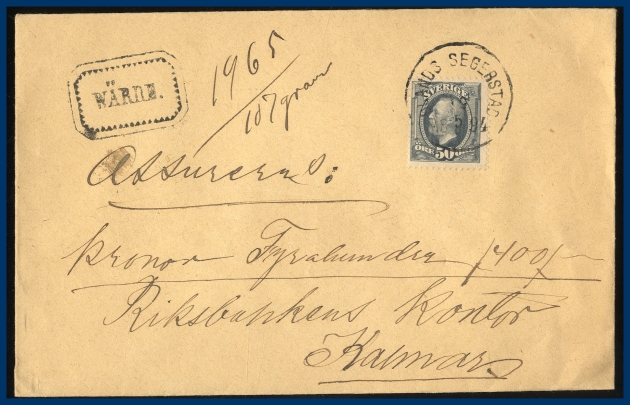 WÄRDE.
1965
107 gram
SEGERSTAD
SVERIGE
ÖRE 50
Assureras:
Kronor Fyrahundra /400/-
Riksbankens Kontor
Kalmar